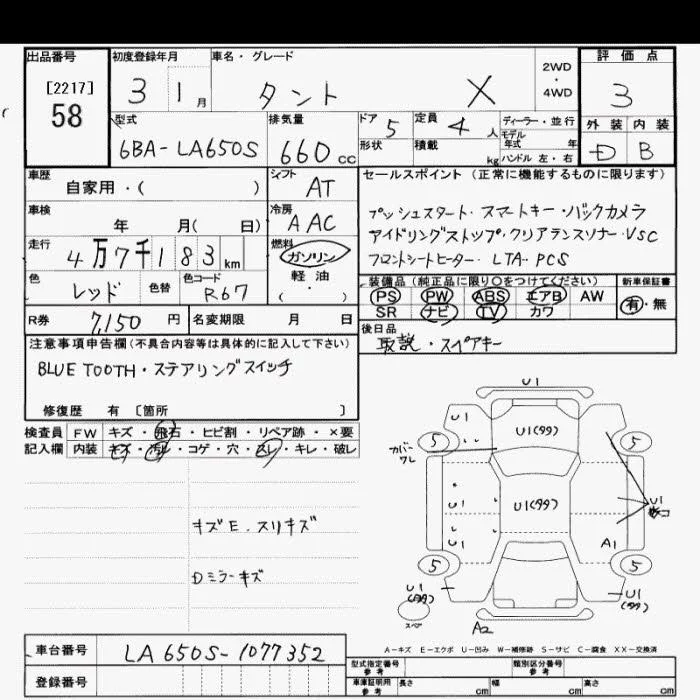 出品番号
[2217]
58
初度登録年月
3 1月
車名・グレード
タント X
2WD
・
4WD
評価点
3
外装 内装
D B
型式
6BA-LA650S
排気量
660 cc
ドア 5
定員 4 人
形状
積載 kg
ディーラー・並行
モデル
年式 年
ハンドル 左・右
車歴
自家用・( )
シフト AT
車検
年 月( 日)
冷房 AAC
走行
4万7千183km
燃料
ガソリン
軽油
・( )
色
レッド
色替
色コード
R67
セールスポイント(正常に機能するものに限ります)
プッシュスタート・スマートキー・バックカメラ
アイドリングストップ・クリアランスソナー・VSC
フロントシートヒーター・LTA・PCS
装備品(純正品に限り〇をつけてください)
PS PW ABS エアB AW
SR ナビ TV カワ
新車保証書
有・無
R券 7,150 円
名変期限 月 日
後日品
取説・スペアキー
注意事項申告欄(不具合内容等は具体的に記入して下さい)
BLUE TOOTH・ステアリングスイッチ
修復歴 有 [箇所 ]
検査員 FW キズ・飛石・ヒビ割・リペア跡・×要
記入欄 内装 キズ・汚レ・コゲ・穴・スレ・キレ・破レ
キズE.スリキズ
Dミラーキズ
U1
U1
U1(タタ)
5
5
カバー
ワレ
U1
U1(タタ)
U1
U1
A1
5
5
U1
(タタ)
U1
(タタ)
スペア
A2
A-キズ E-エクボ U-凹み W-補修跡 S-サビ C-腐食 XX-交換済
車台番号
LA650S-1077352
登録番号
型式指定番号
参考
類別区分番号
参考
車庫証明用
参考
長さ cm 幅 cm 高さ cm